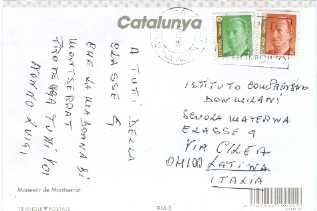 Catalunya
A TUTI DELLA
CLASSE G
CHE LA MADONNA DI
MONTSERRAT
PROTEGGA TUTTI
NONNO LUIGI
ISTITUTO COMPRENSIVO
DON MILANI
SCUOLA MATERNA
CLASSE G
VIA CILEA
04100 LATINA
ITALIA
Monestir de Montserrat
TRIANGLE POSTALS